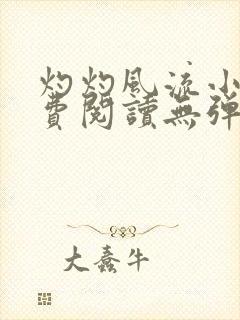 灼灼風流小
費閱讀無彈
大蠢牛